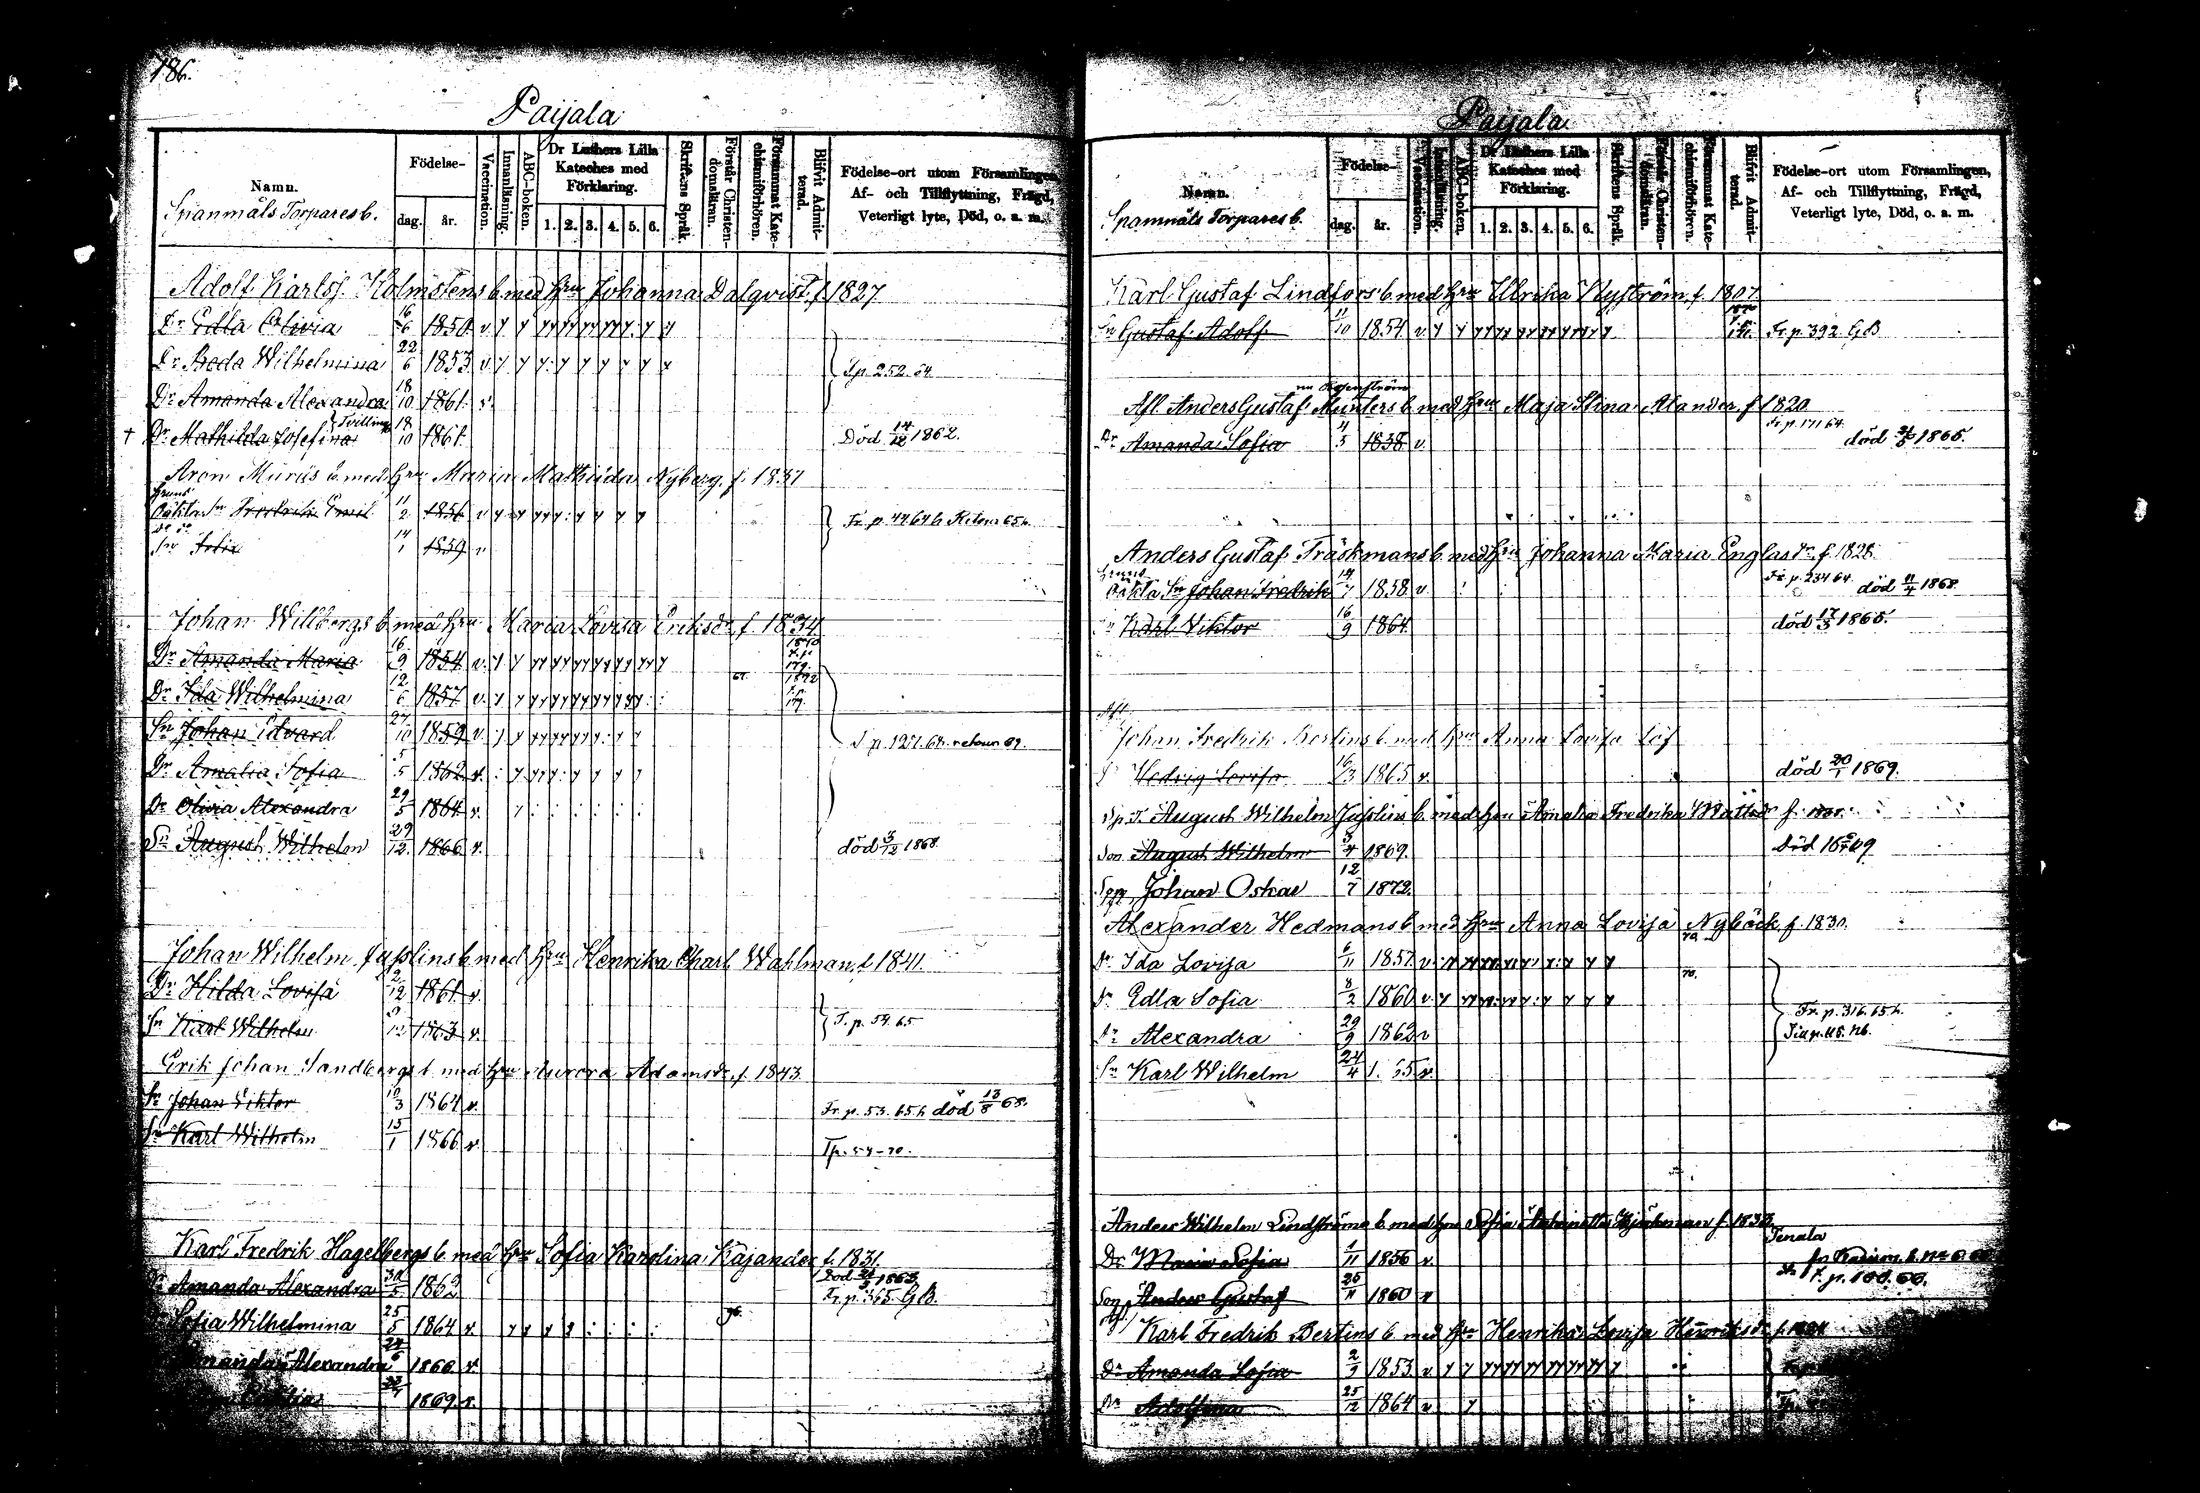 186.
Paijala
Namn.
Spanmåls Torpares b.
Födelse-
dag.
år.
Vaccination.
Innanläsning.
ABC-boken.
Dr Luthers Lilla Kateches med Förklaring.
1. 2. 3. 4. 5. 6.
Skriftens Språk.
Förstår Christendomsläran.
Försummat Katechismiförhören.
Blifvit Admitterad.
Födelse-ort utom Församlingen,
Af- och Tillflyttning, Frägd,
Veterligt lyte, Död, o. a. m.
Adolf Karlss. Holmstens b. med hru Johanna Dalqvist f. 1827
Dr Edla Olivia 16/6 1850 v
Dr Beda Wilhelmina 22/6 1853 v
Dr Amanda Alexandra 18/10 1861 v. T.p. 252. 64
Dr Mathilda Josefina Tvilling 18/10 1861. Död 14/12 1862.
Aron Muräs b. med hru Maria Mathilda Nyberg f. 1837
hruns oäkta Sn Fredrik Emil 11/2 1856 v
do do Sn Felix 14/1 1859 v
Johan Willbergs b. med hru Maria Lovisa Eriksdr f. 1834
Dr Amanda Maria 16/9 1854 v. 1870
Dr Ida Wilhelmina 12/6 1857 v. 1872
Sn Johan Edvard 27/10 1859 v.
Dr Amalia Sofia 5/5 1862 v. T p. 127. 68. retour 69.
Dr Olivia Alexandra 29/5 1864 v.
Sn August Wilhelm 29/12 1866 v. död 3/12 1868.
Johan Wilhelm Jusslins b. med hru Henrika Charl. Wahlman f. 1841.
Dr Hilda Lovisa 2/12 1861 v.
Sn Karl Wilhelm 1863 v. T. p. 54. 65
Erik Johan Sandbergs b. med hru Aurora Adamsdr f. 1843
Sn Johan Viktor 10/3 1864 v. Fr. p. 53. 65 h död 13/8 68.
Sn Karl Wilhelm 13/1 1866 v. Tp. 54-70.
Karl Fredrik Hagelbergs b. med hru Sofia Karolina Kajander f. 1831.
Dr Amanda Alexandra 30/5 1862 Död 1863.
Fr. p. 365 G.B.
Sofia Wilhelmina 25/5 1864 v.
Amanda Alexandra 1866 v.
1869 v.
Paijala
Namn.
Spanmåls Torpares b.
Födelse-
dag.
år.
Vaccination.
Innanläsning.
ABC-boken.
Dr Luthers Lilla Kateches med Förklaring.
1. 2. 3. 4. 5. 6.
Skriftens Språk.
Förstår Christendomsläran.
Försummat Katechismiförhören.
Blifvit Admitterad.
Födelse-ort utom Församlingen,
Af- och Tillflyttning, Frägd,
Veterligt lyte, Död, o. a. m.
Karl Gustaf Lindfors b. med hru Ulrika Nyström f. 1807
Sn Gustaf Adolf 11/10 1854 v. Fr. p. 392 GB
Afl. Anders Gustaf Munters b. med hru Maja Stina Alander f 1820
Fr. p. 171 64.
Dr Amanda Sofia 1838 v. död 1865.
Anders Gustaf Träskmans b. med hru Johanna Maria Englasdr f. 1828
Fr. p. 234 64.
oäkta Sn Johan Fredrik 1858 v. död 11/4 1868
Sn Karl Viktor 16/9 1864. död 17/3 1865.
Afl.
Johan Fredrik Berlins b. med hru Anna Lovisa Löf
Hedvig Lovisa 16/3 1865 v. död 20/1 1869.
Sp. T. August Wilhelm Jusslins b. med hru Amalia Fredrika Mattsdr f.
Son August Wilhelm 3/4 1869. Död
Son Johan Oskar 12/7 1872.
Alexander Hedmans b. med hru Anna Lovisa Nybäck f. 1830.
Dr Ida Lovisa 6/11 1857 v.
Dr Edla Sofia 8/2 1860 v
Dr Alexandra 29/9 1862 v Fr. p. 316. 65 h.
Sn Karl Wilhelm 24/4 1.65 v.
Anders Wilhelm Lindströms b. med hru Sofia Antoinetta Björkman f. 1833
Tenala
Dr Maria Sofia 1/11 1856 v.
Son Anders Gustaf 25/11 1860 v
Karl Fredrik Bertins b. med hru Henrika Lovisa Henriksdr f.
Dr Amanda Sofia 2/9 1853 v
Dr Adolfina 25/12 1864 v